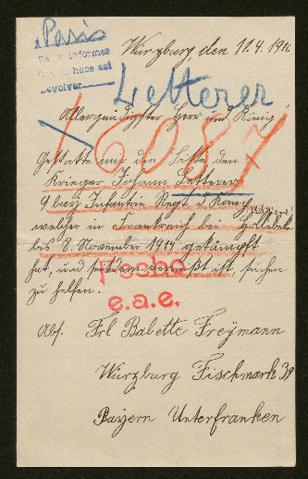 Paris
Würzburg, den 11.4.191
Letterer
Allergnädigster Herr und König!
6057
Gestatte mir die Bitte den
Krieger Johann Letterer
9 bay. Infanterie Regt.
welcher in Frankreich bei Hollebek
bis 8. November 1914 gekämpft
hat, und seitdem vermißt ist, suchen
zu helfen.
Fecha
e.a.e.
Abs. Frl Babette Freÿmann
Würzburg Fischmark 39
Bayern Unterfranken